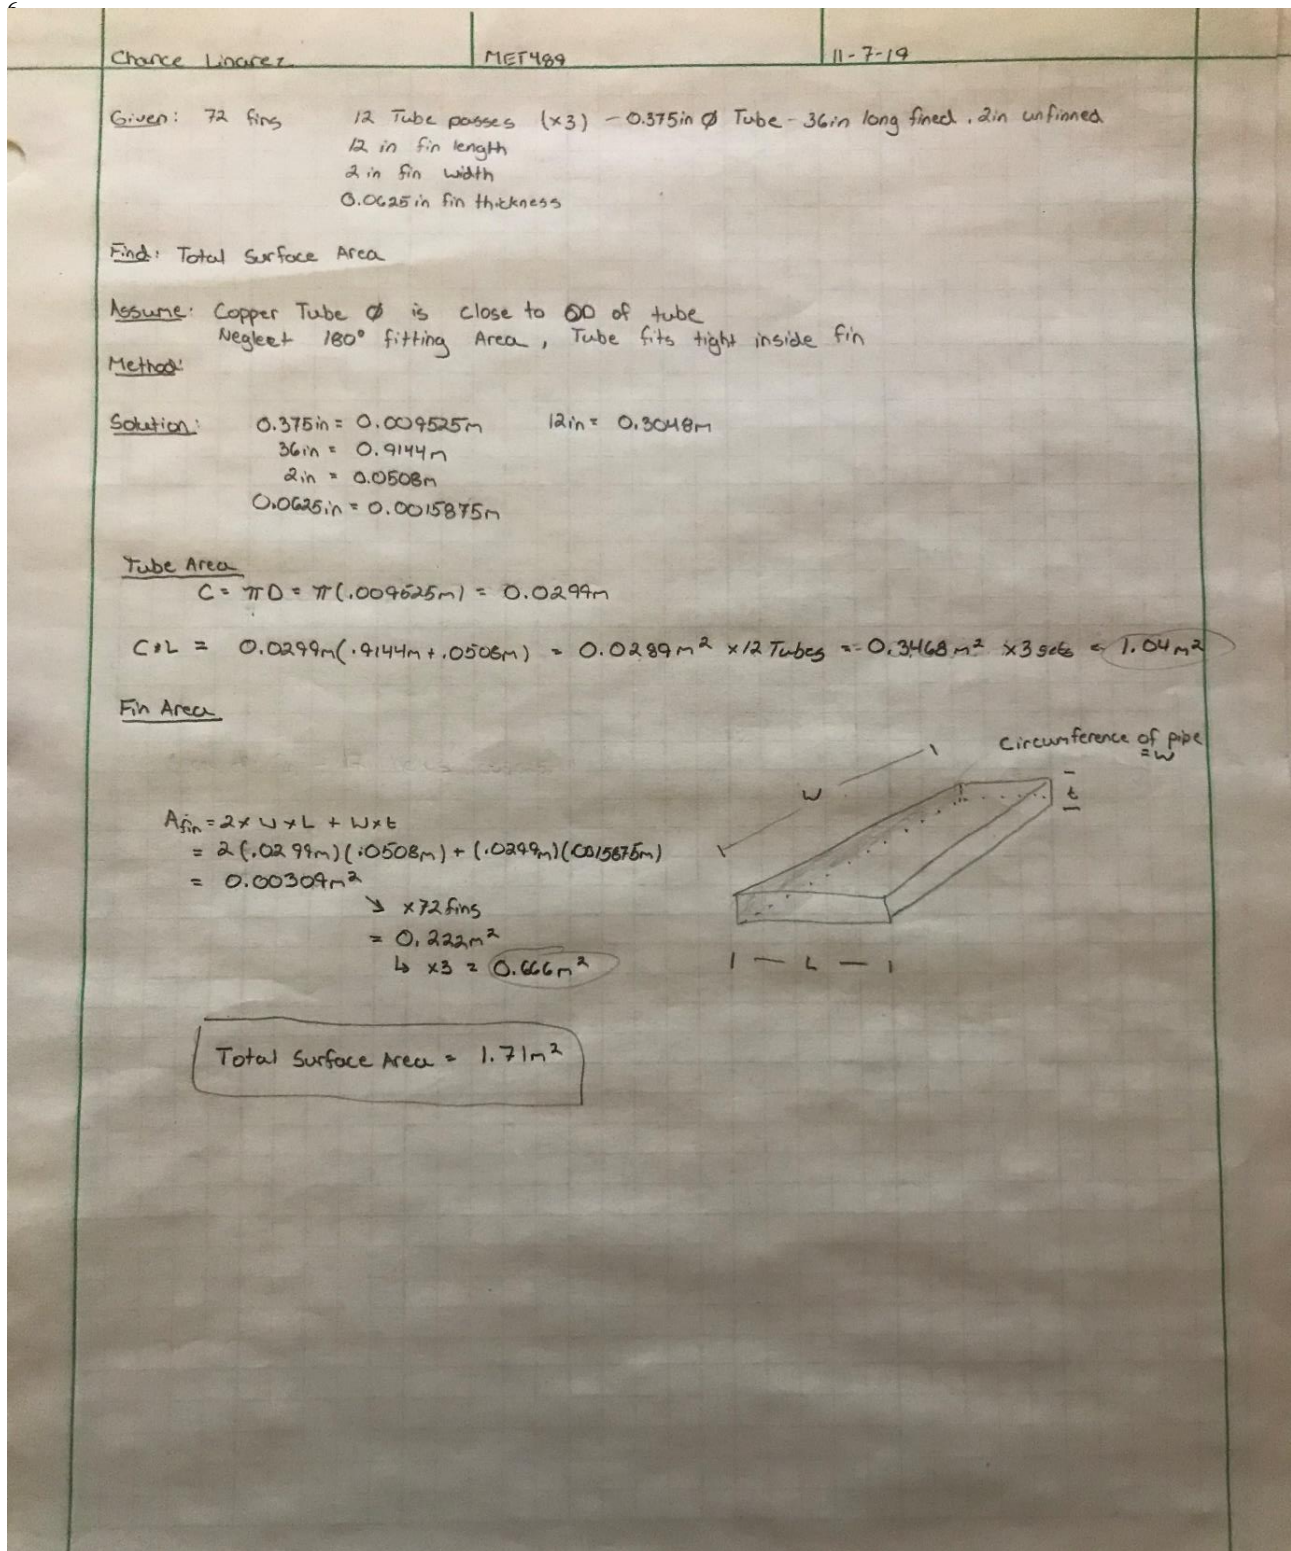 6
Chance Linarez MET489 11-7-19
Given: 72 fins 12 Tube passes (x3) - 0.375in Ø Tube - 36in long fined, 2in unfinned
12 in fin length
2 in fin width
0.0625in fin thickness
Find: Total Surface Area
Assume: Copper Tube Ø is close to OD of tube
Neglect 180° fitting Area, Tube fits tight inside fin
Method:
Solution: 0.375in = 0.009525m 12in = 0.3048m
36in = 0.9144m
2in = 0.0508m
0.0625in = 0.0015875m
Tube Area
C = πD = π(.009525m) = 0.0299m
C*L = 0.0299m(.9144m+.0508m) = 0.0289m² x12 Tubes = 0.3468m² x3 sets = 1.04m²
Fin Area
Circumference of pipe
=w
W
t
Afin = 2 x W x L + W x t
= 2(.0299m)(.0508m) + (.0299m)(.0015875m)
= 0.00309m²
↘ x72 fins
= 0.222m²
↳ x3 = 0.666m²
L
Total Surface Area = 1.71m²